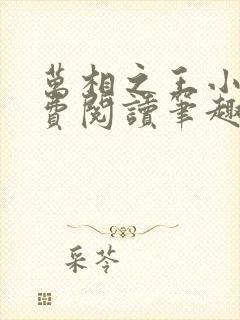 萬相之王小
費閱讀筆趣
采苓